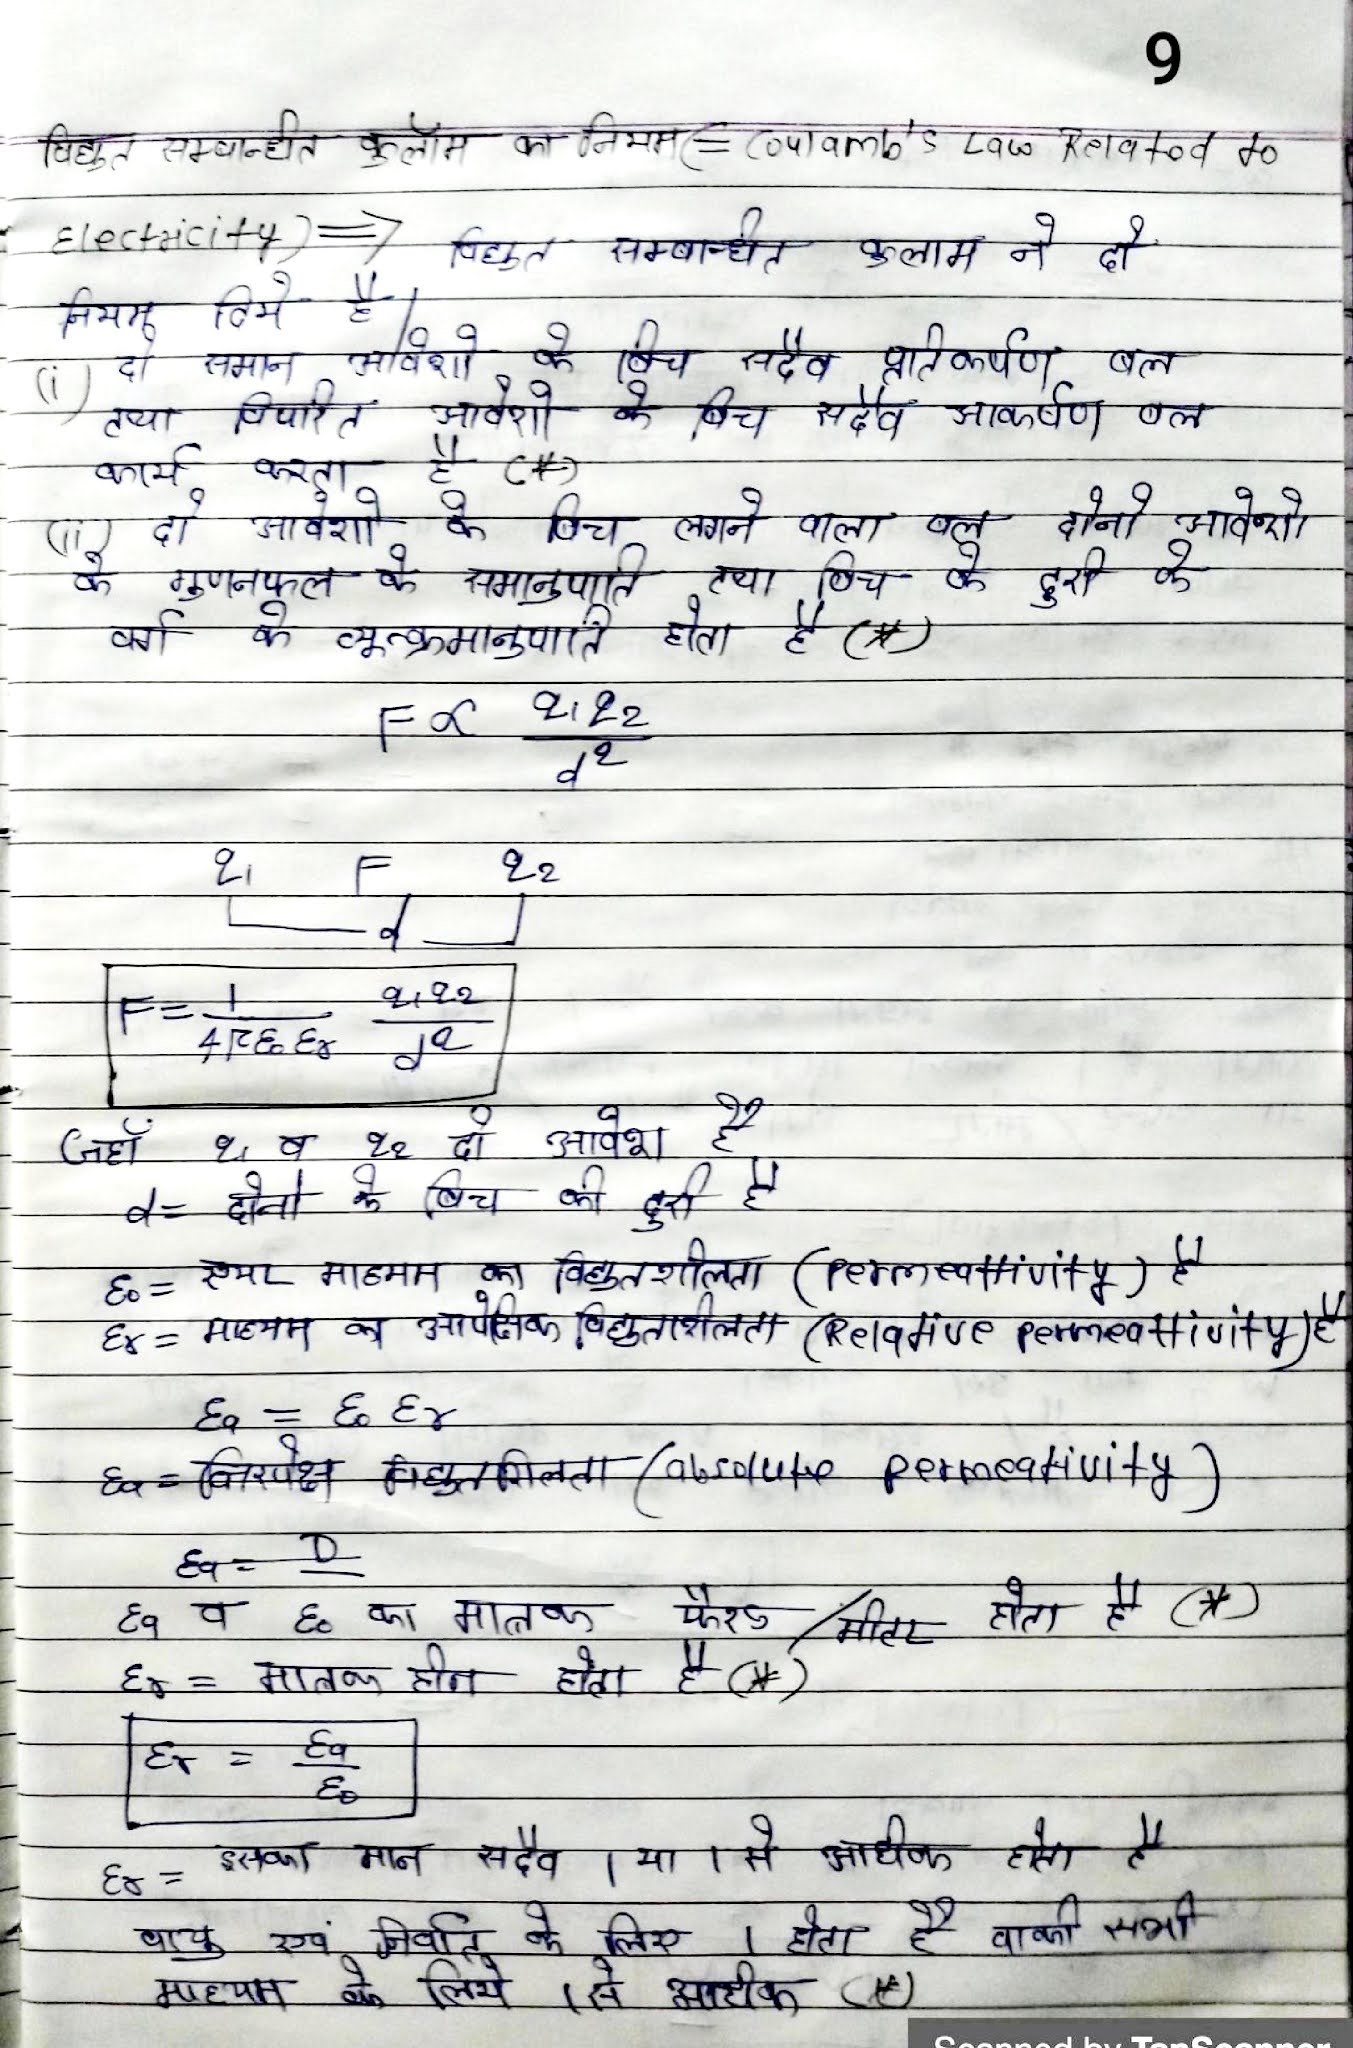 9
विद्युत सम्बान्धीत कुलॉम का नियम(= Coulamb's Law Related to
Electricity) => विद्युत सम्बान्धीत कुलाम ने दो
नियम दिये है।
(i) दो समान आवेशो के बिच सदैव प्रतिकर्षण बल
तथा विपरित आवेशो के बिच सदैव आकर्षण बल
कार्य करता है (*)
(ii) दो आवेशो के बिच लगने वाला बल दोनो आवेशो
के गुणनफल के समानुपाति तथा बिच के दुरी के
वर्ग के व्यूत्क्रमानुपाति होता है (*)
F ∝ q₁q₂/d²
q₁ F q₂
d
F = 1/4πε₀εr q₁q₂/d²
जहाँ q₁ व q₂ दो आवेश है
d = दोनो के बिच की दुरी है
ε₀ = माध्यम का विद्युतशीलता (Permeattivity) है
εr = माध्यम का आपेक्षिक विद्युतशीलता (Relative permeattivity) है
εa = ε₀ εr
εa = निरपेक्ष विद्युतशिलता (absolute permeativity)
εa = D/
εa व ε₀ का मात्रक फैरड/मीटर होता है (*)
εr = मात्रक हीन होता है (*)
εr = εa/ε₀
εr = इसका मान सदैव 1 या 1 से आधीक होता है
वायु एवं निर्वात के लिए 1 होता है बाकी सभी
माध्यम के लिये 1 से आधीक (*)
Scanned by TapScanner